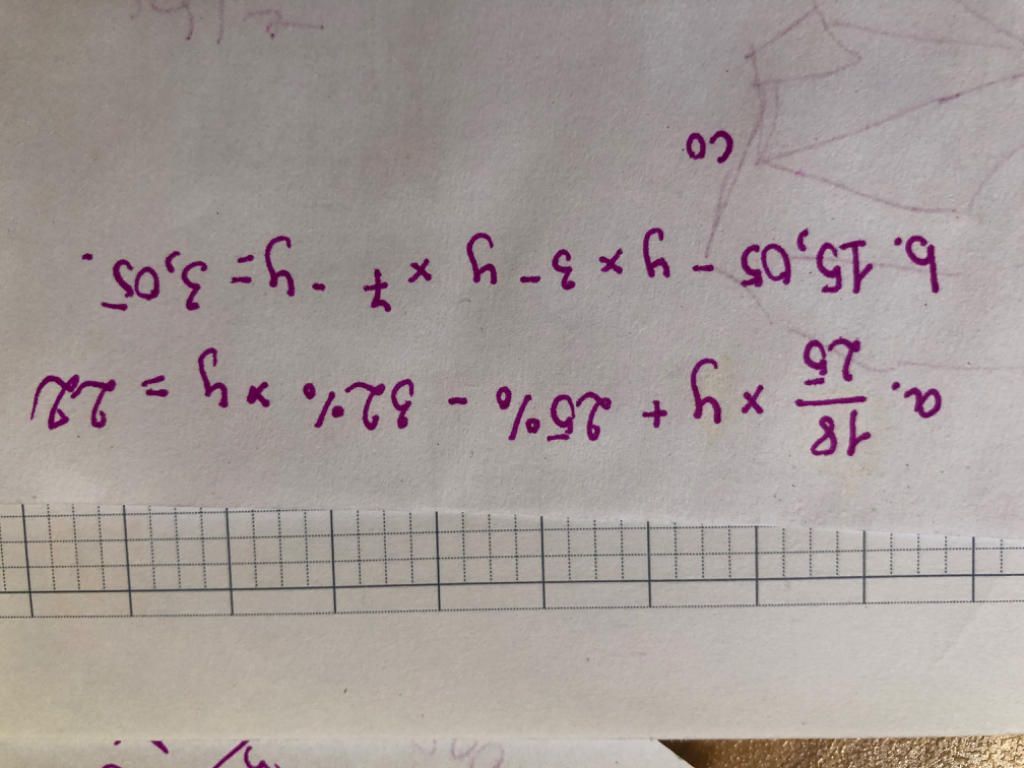 a. 18/25 × y + 25% - 32% × y = 2,2
b. 15,05 - y × 3 - y × 7 - y = 3,05.
co